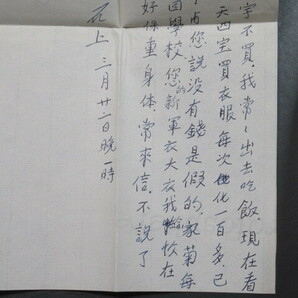 字不買,我常々出去吃飯,現在看
天四宝買衣服每次化一百多,已
您說没有錢是假的,家菊每
回學校,您的新軍衣大衣我給忟在
好保重身体,常來信,不說了
上 三月廿二日晚一時